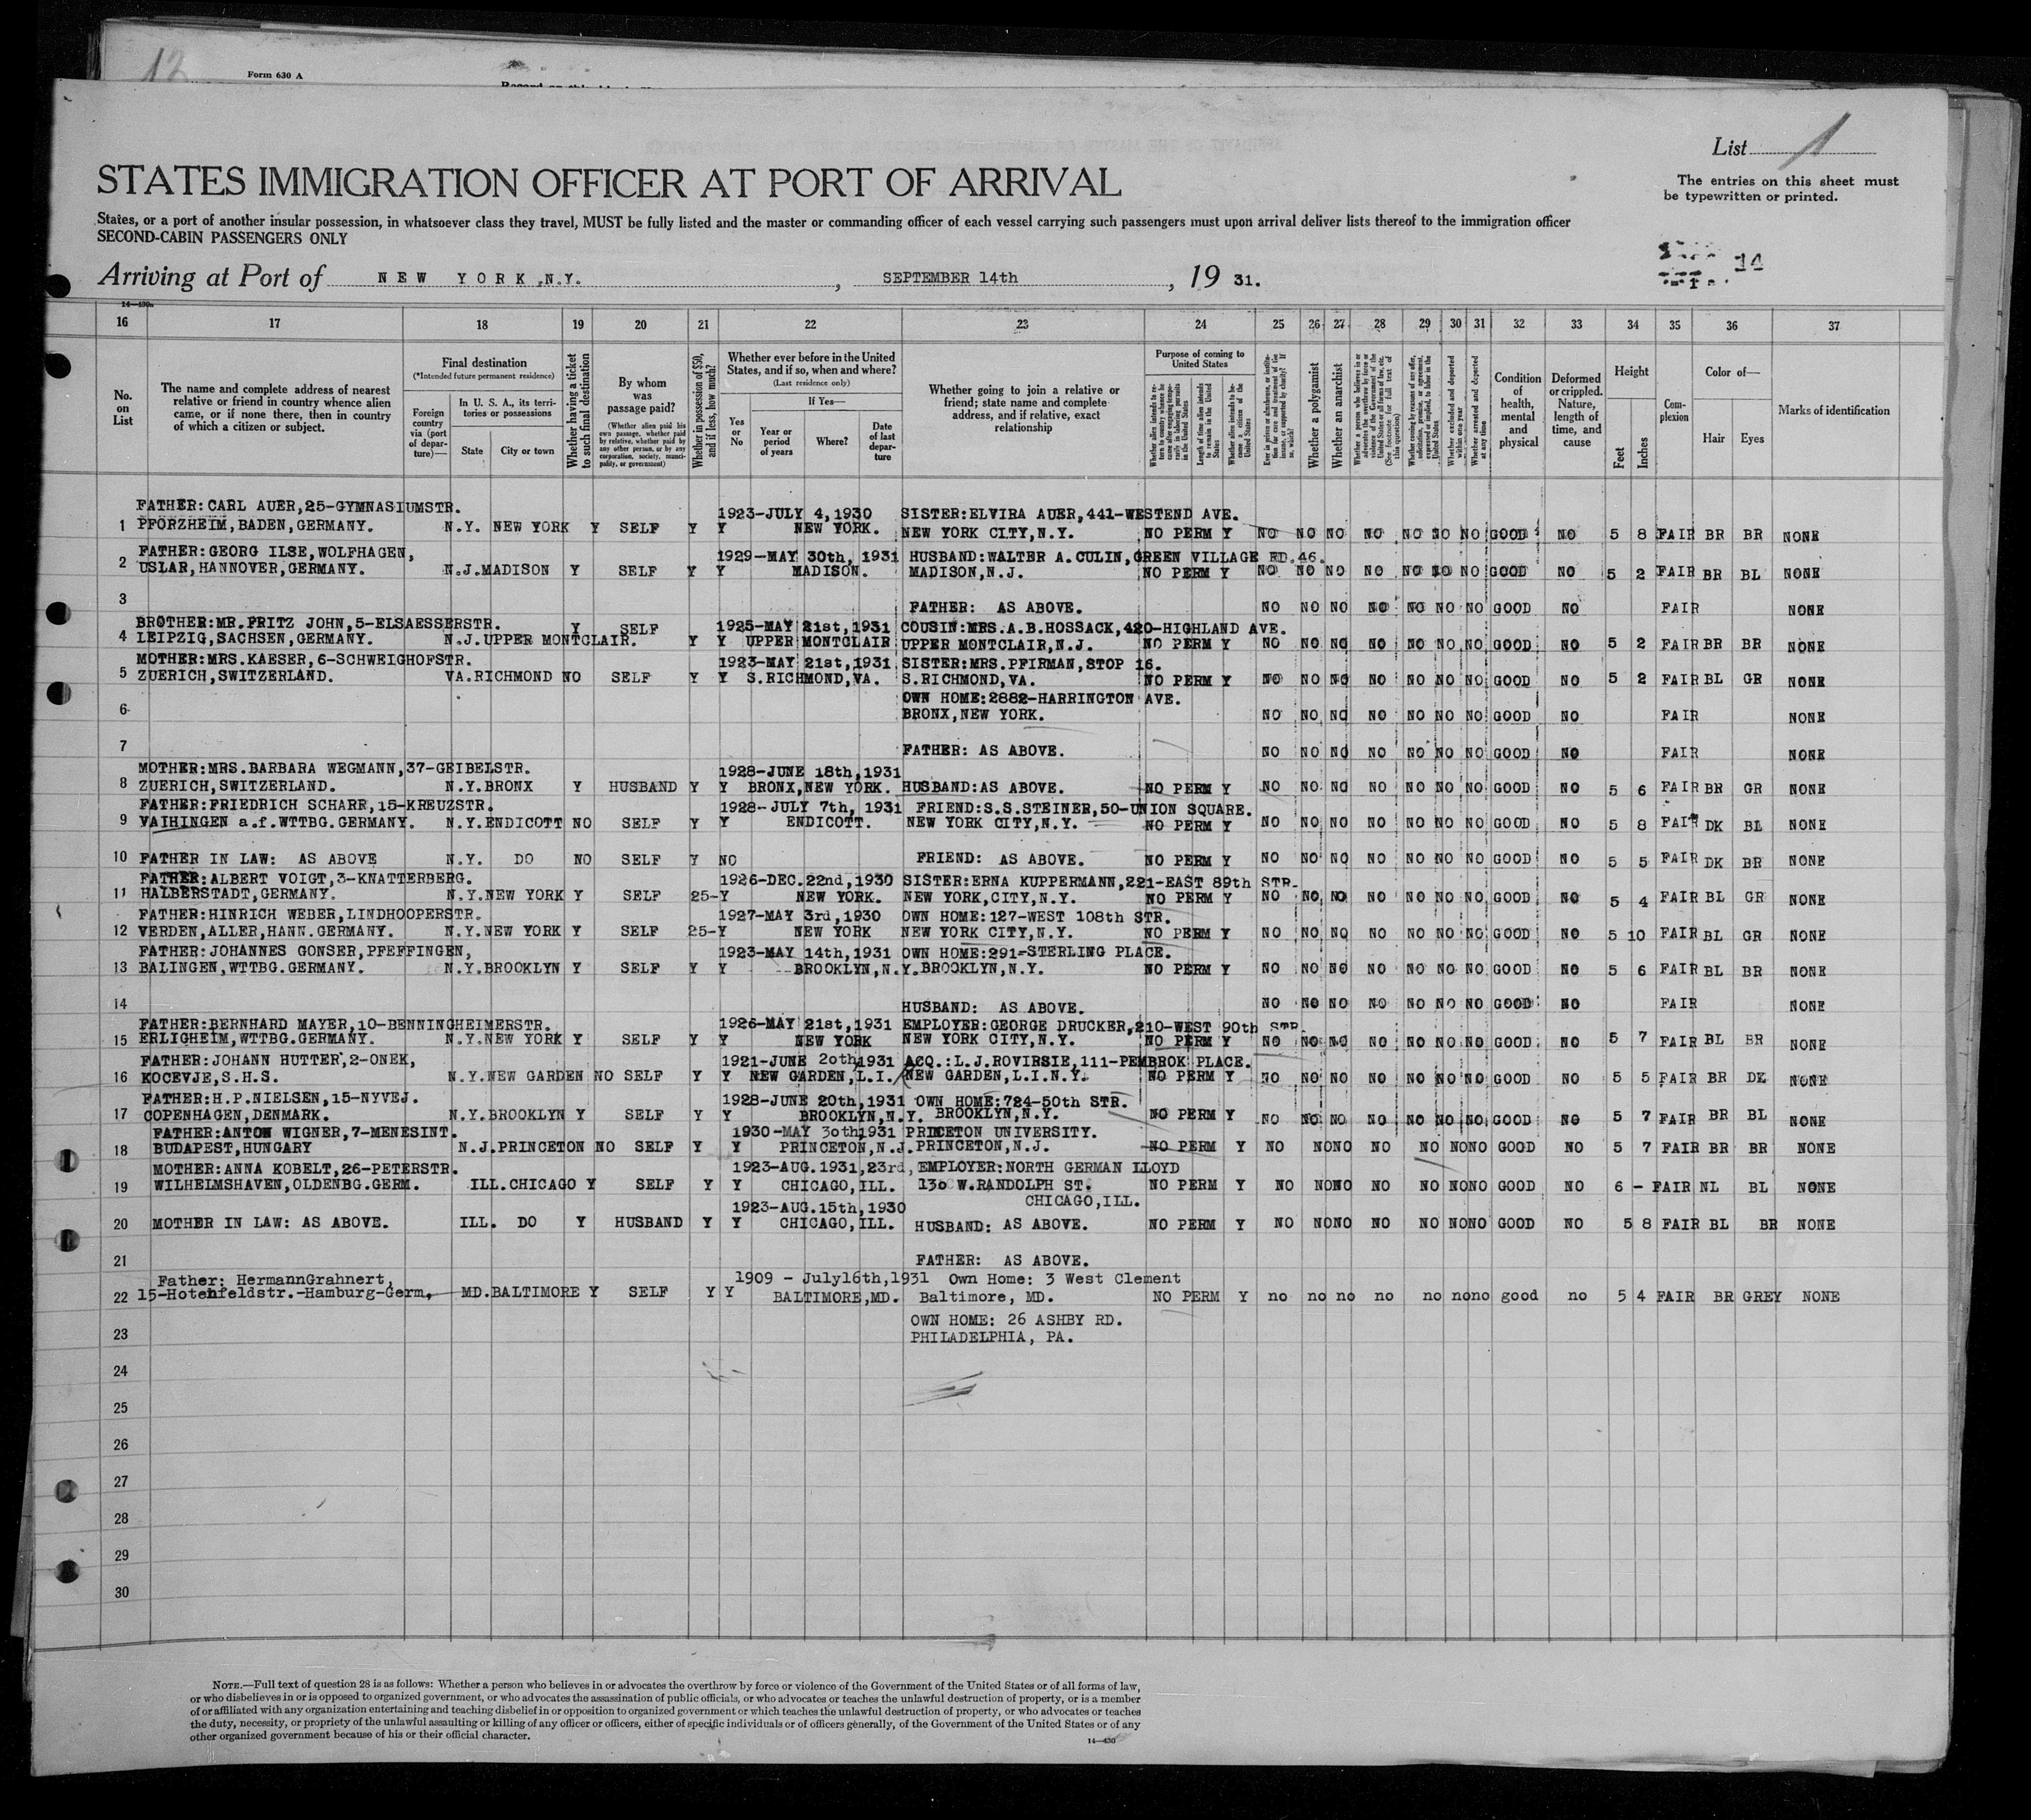 12
Form 630 A
List 1
STATES IMMIGRATION OFFICER AT PORT OF ARRIVAL
The entries on this sheet must
be typewritten or printed.
States, or a port of another insular possession, in whatsoever class they travel, MUST be fully listed and the master or commanding officer of each vessel carrying such passengers must upon arrival deliver lists thereof to the immigration officer
SECOND-CABIN PASSENGERS ONLY
14
Arriving at Port of NEW YORK,N.Y., SEPTEMBER 14th, 19 31.
16 17 18 19 20 21 22 23 24 25 26 27 28 29 30 31 32 33 34 35 36 37
No. on List
The name and complete address of nearest relative or friend in country whence alien came, or if none there, then in country of which a citizen or subject.
Final destination
(*Intended future permanent residence)
Foreign country via (port of departure)—
In U. S. A., its territories or possessions
State
City or town
Whether having a ticket to such final destination
By whom was passage paid?
(Whether alien paid his own passage, whether paid by relative, whether paid by any other person, or by any corporation, society, municipality, or government)
Whether in possession of $50, and if less, how much?
Whether ever before in the United States, and if so, when and where?
(Last residence only)
Yes or No
If Yes—
Year or period of years
Where?
Date of last departure
Whether going to join a relative or friend; state name and complete address, and if relative, exact relationship
Purpose of coming to United States
Length of time alien intends to remain in the United States
Whether alien intends to become a citizen of the United States
Whether a polygamist
Whether an anarchist
Whether excluded and deported within one year
Whether arrested and deported at any time
Condition of health, mental and physical
Deformed or crippled. Nature, length of time, and cause
Height
Feet
Inches
Complexion
Color of—
Hair
Eyes
Marks of identification
FATHER:CARL AUER,25-GYMNASIUMSTR. 1923-JULY 4,1930 SISTER:ELVIRA AUER,441-WESTEND AVE.
1 PFORZHEIM,BADEN,GERMANY. N.Y. NEW YORK Y SELF Y Y NEW YORK. NEW YORK CITY,N.Y. NO PERM Y NO NO NO NO NO NO NO GOOD NO 5 8 FAIR BR BR NONE
FATHER:GEORG ILSE,WOLFHAGEN, 1929-MAY 30th, 1931 HUSBAND:WALTER A.CULIN,GREEN VILLAGE RD.46.
2 USLAR,HANNOVER,GERMANY. N.J.MADISON Y SELF Y Y MADISON. MADISON,N.J. NO PERM Y NO NO NO NO NO NO NO GOOD NO 5 2 FAIR BR BL NONE
3 FATHER: AS ABOVE. NO NO NO NO NO NO NO GOOD NO FAIR NONE
BROTHER:MR.FRITZ JOHN,5-ELSAESSERSTR. Y SELF 1925-MAY 21st,1931 COUSIN:MRS.A.B.HOSSACK,420-HIGHLAND AVE.
4 LEIPZIG,SACHSEN,GERMANY. N.J.UPPER MONTCLAIR. Y Y UPPER MONTCLAIR UPPER MONTCLAIR,N.J. NO PERM Y NO NO NO NO NO NO NO GOOD NO 5 2 FAIR BR BR NONE
MOTHER:MRS.KAESER,6-SCHWEIGHOFSTR. 1923-MAY 21st,1931 SISTER:MRS.PFIRMAN,STOP 16.
5 ZUERICH,SWITZERLAND. VA.RICHMOND NO SELF Y Y S.RICHMOND,VA. S.RICHMOND,VA. NO PERM Y NO NO NO NO NO NO NO GOOD NO 5 2 FAIR BL GR NONE
OWN HOME:2882-HARRINGTON AVE.
6 BRONX,NEW YORK. NO NO NO NO NO NO NO GOOD NO FAIR NONE
7 FATHER: AS ABOVE. NO NO NO NO NO NO NO GOOD NO FAIR NONE
MOTHER:MRS.BARBARA WEGMANN,37-GEIBELSTR. 1928-JUNE 18th,1931
8 ZUERICH,SWITZERLAND. N.Y.BRONX Y HUSBAND Y Y BRONX,NEW YORK. HUSBAND:AS ABOVE. NO PERM Y NO NO NO NO NO NO NO GOOD NO 5 6 FAIR BR GR NONE
FATHER:FRIEDRICH SCHARR,15-KREUZSTR. 1928-JULY 7th, 1931 FRIEND:S.S.STEINER,50-UNION SQUARE.
9 VAIHINGEN a.f.WTTBG.GERMANY. N.Y.ENDICOTT NO SELF Y Y ENDICOTT. NEW YORK CITY,N.Y. NO PERM Y NO NO NO NO NO NO NO GOOD NO 5 8 FAIR DK BL NONE
10 FATHER IN LAW: AS ABOVE N.Y. DO NO SELF Y NO FRIEND: AS ABOVE. NO PERM Y NO NO NO NO NO NO NO GOOD NO 5 5 FAIR DK BR NONE
FATHER:ALBERT VOIGT,3-KNATTERBERG. 1926-DEC.22nd,1930 SISTER:ERNA KUPPERMANN,221-EAST 89th STR.
11 HALBERSTADT,GERMANY. N.Y.NEW YORK Y SELF 25-Y NEW YORK. NEW YORK,CITY,N.Y. NO PERM Y NO NO NO NO NO NO NO GOOD NO 5 4 FAIR BL GR NONE
FATHER:HINRICH WEBER,LINDHOOPERSTR. 1927-MAY 3rd,1930 OWN HOME:127-WEST 108th STR.
12 VERDEN,ALLER,HANN.GERMANY. N.Y.NEW YORK Y SELF 25-Y NEW YORK NEW YORK CITY,N.Y. NO PERM Y NO NO NO NO NO NO NO GOOD NO 5 10 FAIR BL GR NONE
FATHER:JOHANNES GONSER,PFEFFINGEN, 1923-MAY 14th,1931 OWN HOME:291-STERLING PLACE.
13 BALINGEN,WTTBG.GERMANY. N.Y.BROOKLYN Y SELF Y Y BROOKLYN,N.Y.BROOKLYN,N.Y. NO PERM Y NO NO NO NO NO NO NO GOOD NO 5 6 FAIR BL BR NONE
14 HUSBAND: AS ABOVE. NO NO NO NO NO NO NO GOOD NO FAIR NONE
FATHER:BERNHARD MAYER,10-BENNINGHEIMERSTR. 1926-MAY 21st,1931 EMPLOYER:GEORGE DRUCKER,210-WEST 90th STR.
15 ERLIGHEIM,WTTBG.GERMANY. N.Y.NEW YORK Y SELF Y Y NEW YORK NEW YORK CITY,N.Y. NO PERM Y NO NO NO NO NO NO NO GOOD NO 5 7 FAIR BL BR NONE
FATHER:JOHANN HUTTER,2-ONEK, 1921-JUNE 20th,1931 ACQ.:L.J.ROVIRSIE,111-PEMBROK PLACE.
16 KOCEVJE,S.H.S. N.Y.NEW GARDEN NO SELF Y Y NEW GARDEN,L.I. NEW GARDEN,L.I.N.Y. NO PERM Y NO NO NO NO NO NO NO GOOD NO 5 5 FAIR BR DK NONE
FATHER:H.P.NIELSEN,15-NYVEJ. 1928-JUNE 20th,1931 OWN HOME:724-50th STR.
17 COPENHAGEN,DENMARK. N.Y.BROOKLYN Y SELF Y Y BROOKLYN,N.Y. BROOKLYN,N.Y. NO PERM Y NO NO NO NO NO NO NO GOOD NO 5 7 FAIR BR BL NONE
FATHER:ANTON WIGNER,7-MENESINT. 1930-MAY 30th1931 PRICETON UNIVERSITY.
18 BUDAPEST,HUNGARY N.J.PRINCETON NO SELF Y Y PRINCETON,N.J.PRINCETON,N.J. NO PERM Y NO NONO NO NO NONO GOOD NO 5 7 FAIR BR BR NONE
MOTHER:ANNA KOBELT,26-PETERSTR. 1923-AUG.1931,23rd, EMPLOYER:NORTH GERMAN LLOYD
19 WILHELMSHAVEN,OLDENBG.GERM. ILL.CHICAGO Y SELF Y Y CHICAGO,ILL. 130 W.RANDOLPH ST. NO PERM Y NO NONO NO NO NONO GOOD NO 6 - FAIR NL BL NONE
1923-AUG.15th,1930 CHICAGO,ILL.
20 MOTHER IN LAW: AS ABOVE. ILL. DO Y HUSBAND Y Y CHICAGO,ILL. HUSBAND: AS ABOVE. NO PERM Y NO NONO NO NO NONO GOOD NO 5 8 FAIR BL BR NONE
21 FATHER: AS ABOVE.
Father: HermannGrahnert, 1909 - July16th,1931 Own Home: 3 West Clement
22 15-Hotenfeldstr.-Hamburg-Germ. MD.BALTIMORE Y SELF Y Y BALTIMORE,MD. Baltimore, MD. NO PERM Y no no no no no nono good no 5 4 FAIR BR GREY NONE
OWN HOME: 26 ASHBY RD.
23 PHILADELPHIA, PA.
24
25
26
27
28
29
30
NOTE.—Full text of question 28 is as follows: Whether a person who believes in or advocates the overthrow by force or violence of the Government of the United States or of all forms of law,
or who disbelieves in or is opposed to organized government, or who advocates the assassination of public officials, or who advocates or teaches the unlawful destruction of property, or is a member
of or affiliated with any organization entertaining and teaching disbelief in or opposition to organized government or which teaches the unlawful destruction of property, or who advocates or teaches
the duty, necessity, or propriety of the unlawful assaulting or killing of any officer or officers, either of specific individuals or of officers generally, of the Government of the United States or of any
other organized government because of his or their official character.
14—430